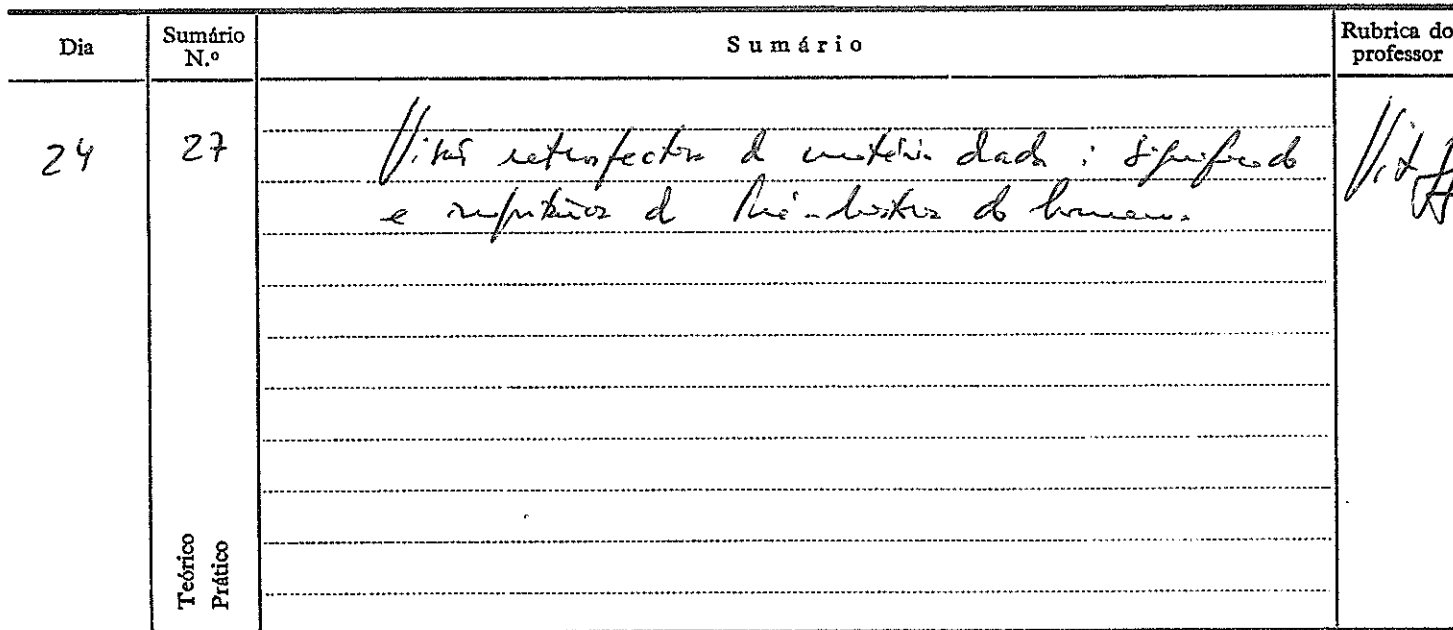 Dia
Sumário N.º
Sumário
Rubrica do professor
24
27
Visão retrospectiva da matéria dada: significado
e da Pré-história do homem.
Teórico
Prático